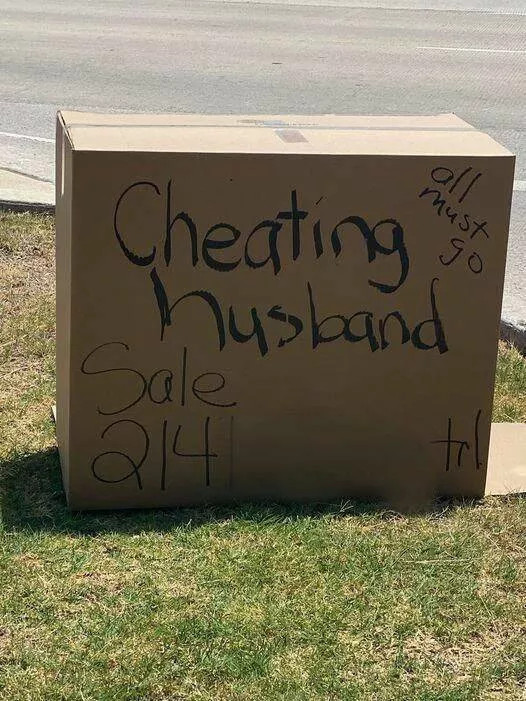 Cheating
husband
all
must
go
Sale
214
trl